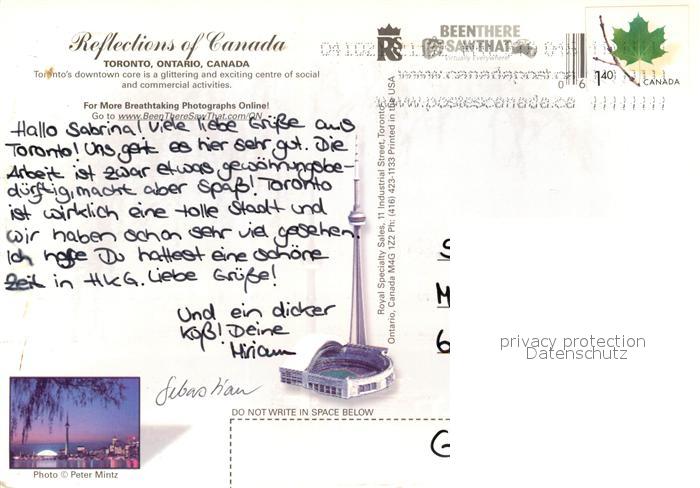 Reflections of Canada
TORONTO, ONTARIO, CANADA
Toronto's downtown core is a glittering and exciting centre of social
and commercial activities.
For More Breathtaking Photographs Online!
Go to www.BeenThereSawThat.com/ON
Hallo Sabrina! Viele liebe Grüße aus
Toronto! Uns geht es hier sehr gut. Die
Arbeit ist zwar etwas gewöhnungsbe-
dürftig, macht aber Spaß! Toronto
ist wirklich eine tolle Stadt und
wir haben schon sehr viel gesehen.
Ich hoffe Du hattest eine schöne
Zeit in HKG. Liebe Grüße!
Und ein dicker
Kuß! Deine
Miriam
Sebastian
Photo © Peter Mintz
DO NOT WRITE IN SPACE BELOW
Royal Specialty Sales, 11 Industrial Street, Toronto,
Ontario, Canada M4G 1Z2 Ph: (416) 423-1133 Printed in the USA
RS
BEENTHERE
SAWTHAT
Virtually Everywhere!
www.canadapost.ca
www.postescanada.ca
06
1.40
CANADA
S
M
6
G
privacy protection
Datenschutz